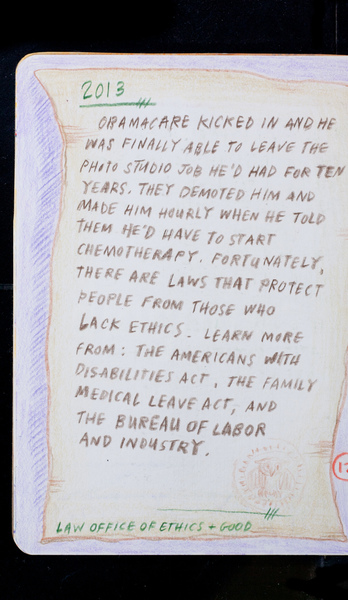 2013
OBAMACARE KICKED IN AND HE
WAS FINALLY ABLE TO LEAVE THE
PHOTO STUDIO JOB HE'D HAD FOR TEN
YEARS. THEY DEMOTED HIM AND
MADE HIM HOURLY WHEN HE TOLD
THEM HE'D HAVE TO START
CHEMOTHERAPY. FORTUNATELY,
THERE ARE LAWS THAT PROTECT
PEOPLE FROM THOSE WHO
LACK ETHICS. LEARN MORE
FROM: THE AMERICANS WITH
DISABILITIES ACT, THE FAMILY
MEDICAL LEAVE ACT, AND
THE BUREAU OF LABOR
AND INDUSTRY.
LAW OFFICE OF ETHICS + GOOD